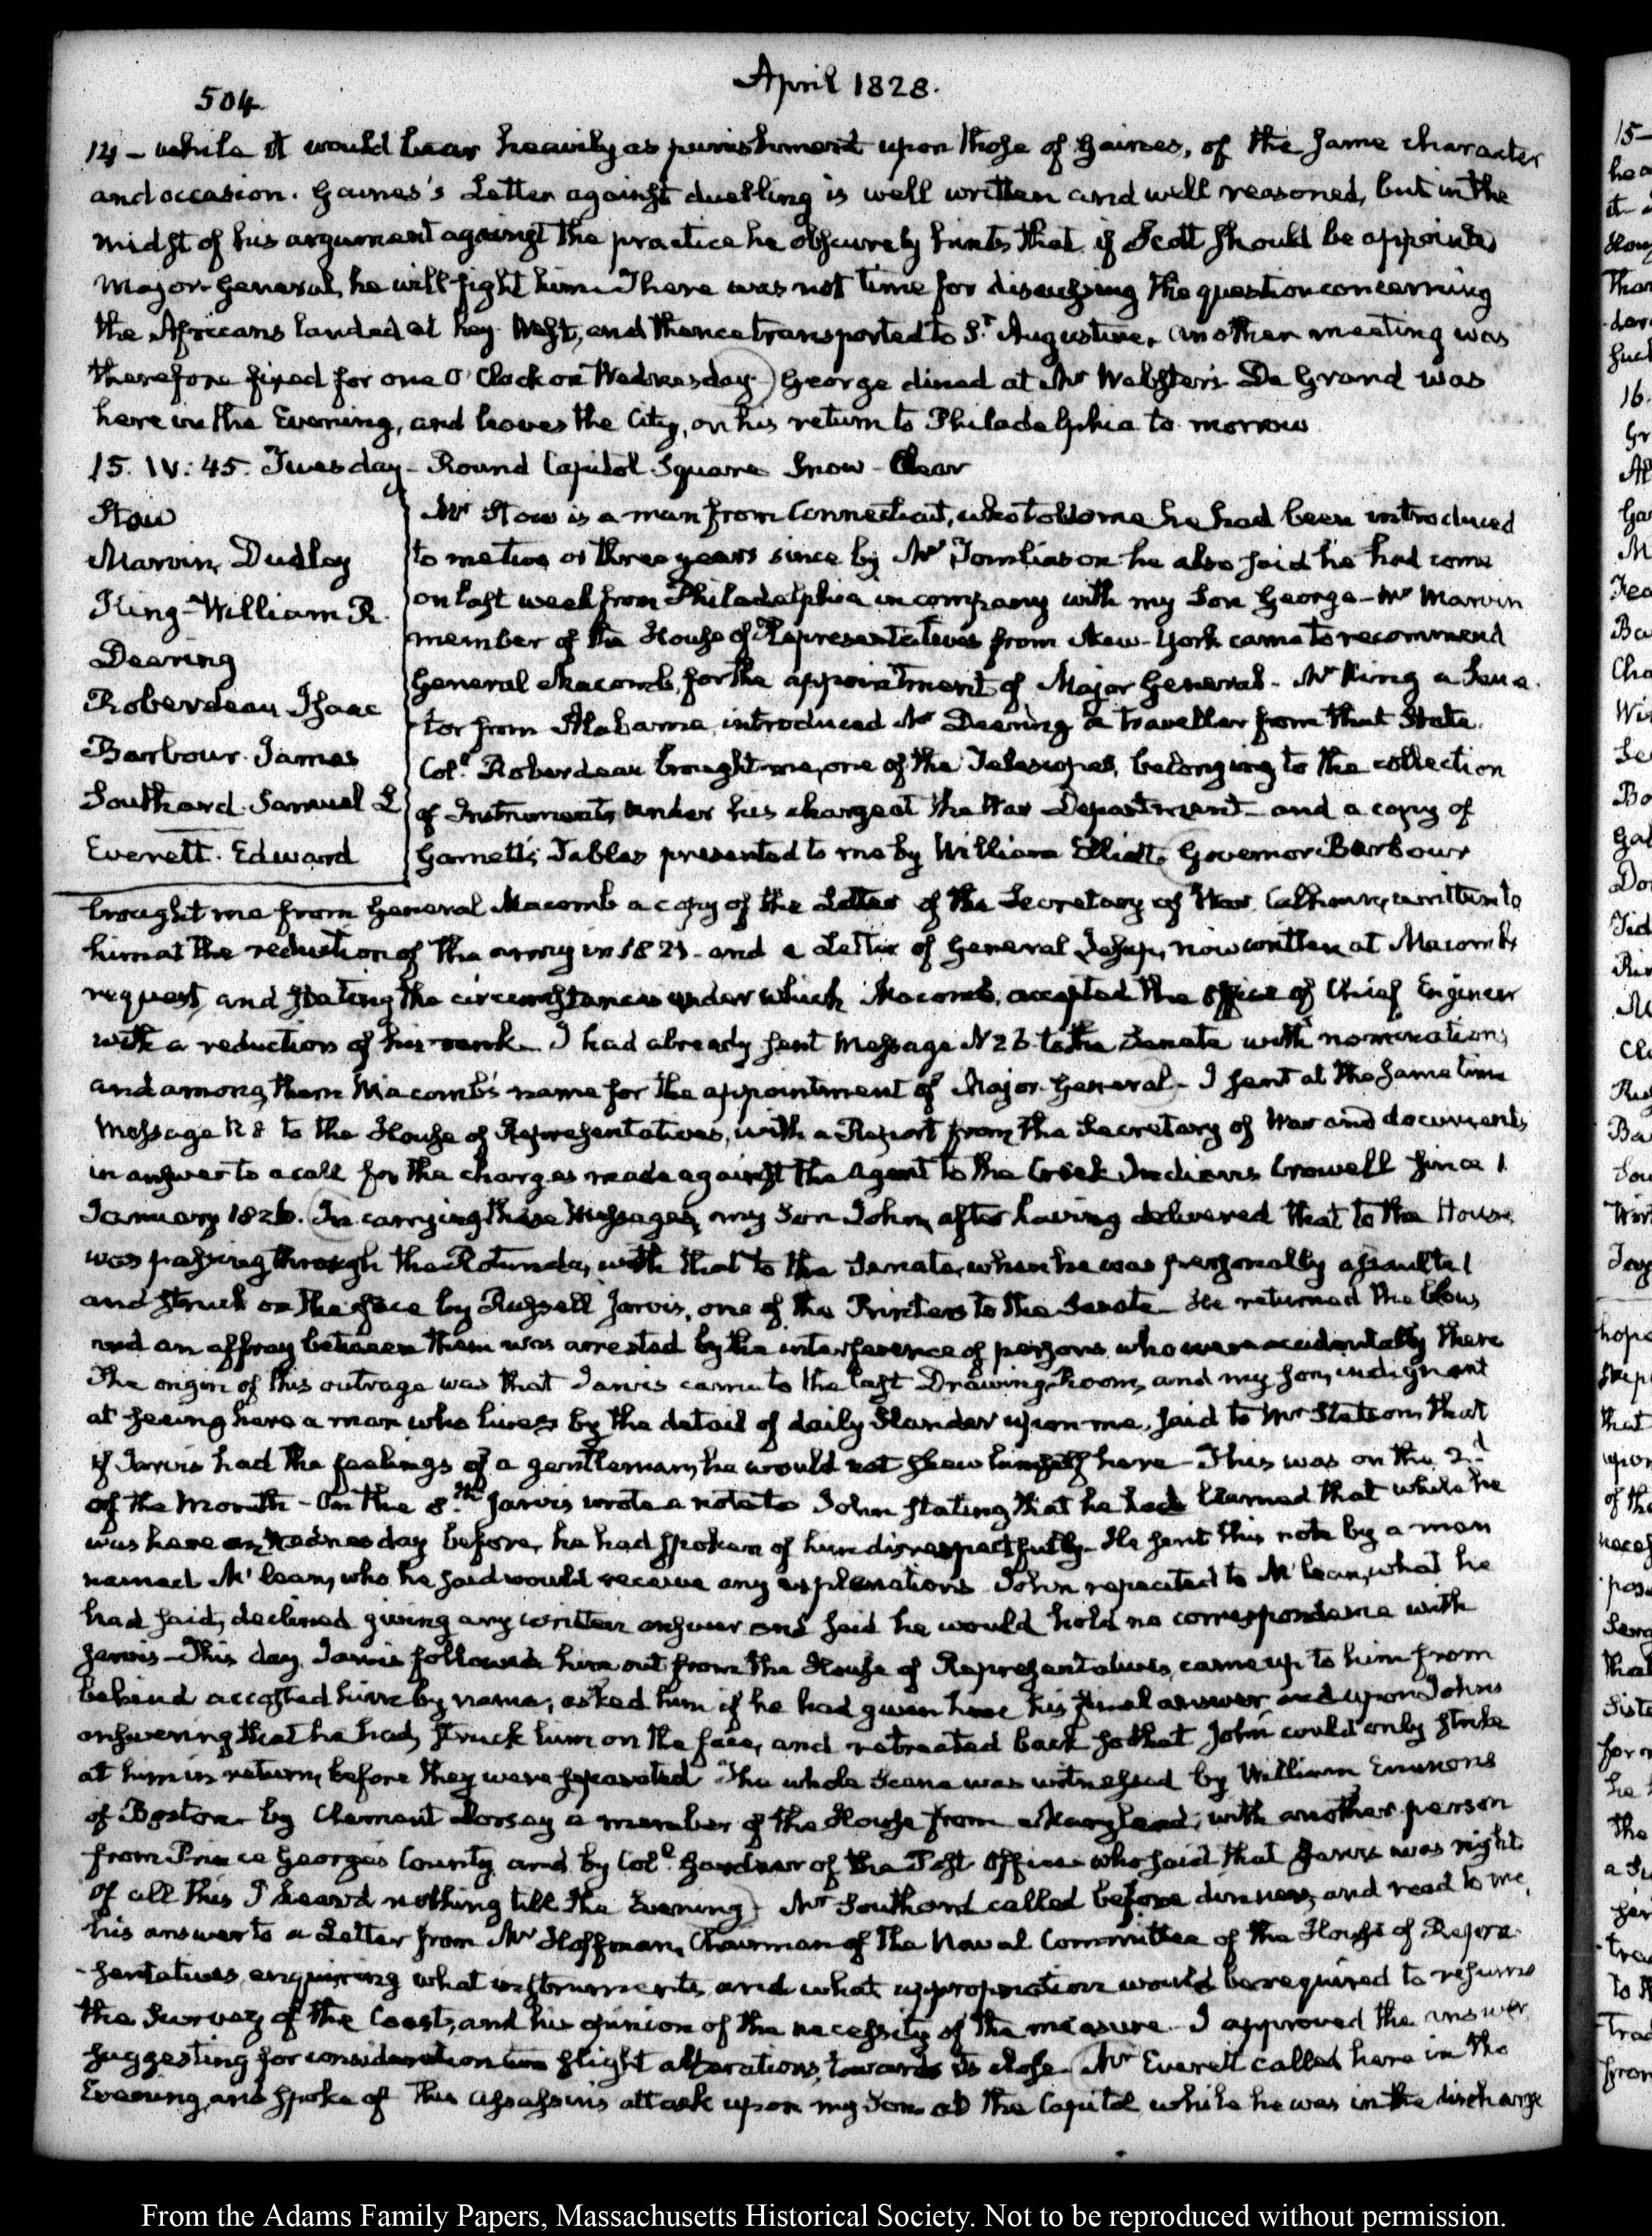 504
April 1828.
14 – while it would bear heavily as punishment upon those of Gaines, of the same character
and occasion. Gaines's Letter against duelling is well written and well reasoned, but in the
midst of his argument against the practice he obscurely hints that if Scott should be appointed
Major-General, he will fight him. There was not time for discussing the question concerning
the Africans landed at Key-West, and thence transported to St. Augustine, another meeting was
therefore fixed for one O'Clock on Wednesday. George dined at Mr Webster's. De Grand was
here in the Evening, and leaves the City, on his return to Philadelphia to-morrow
15. IV: 45. Tuesday – Round Capitol Square Snow – Clear
Stow
Marvin, Dudley
King – William R.
Dearing
Roberdeau Isaac
Barbour. James
Southard. Samuel L
Everett. Edward
Mr Stow is a man from Connecticut, who told me he had been introduced
to me two or three years since by Mr Tomlinson he also said he had come
on last week from Philadelphia in company with my Son George – Mr Marvin
member of the House of Representatives from New-York came to recommend
General Macomb, for the appointment of Major General – Mr King a Sena-
-tor from Alabama, introduced Mr Dearing a traveller from that State.
Coll. Roberdeau brought me, one of the Telescopes, belonging to the collection
of Instruments under his charge at the War Department – and a copy of
Garnett's Tables presented to me by William Elliott. Governor Barbour
brought me from General Macomb a copy of the Letter of the Secretary of War Calhoun, written to
him at the reduction of the army in 1821 – and a Letter of General Jesup, now written at Macomb's
request, and stating the circumstances under which Macomb, accepted the Office of Chief Engineer
with a reduction of his rank – I had already sent Message N 26 to the Senate with nominations
and among them Macomb's name for the appointment of Major-General – I sent at the same time
Message N 8 to the House of Representatives, with a Report from the Secretary of War and documents
in answer to a call for the charges made against the Agent to the Creek Indians Crowell since 1
January 1826. In carrying these Messages, my Son John, after having delivered that to the House
was passing through the Rotunda, with that to the Senate, when he was personally assaulted
and struck on the face by Russell Jarvis, one of the Printers to the Senate – He returned the blow,
and an affray between them was arrested by the interference of persons who were accidentally there
The origin of this outrage was that Jarvis came to the last Drawing Room, and my son, indignant
at seeing here a man who lives by the detail of daily slander upon me, said to Mr Stetson, that
if Jarvis had the feelings of a gentleman, he would not shew himself here – This was on the 2d.
of the Month – On the 8th. Jarvis wrote a note to John stating that he had learned that while he
was here on Wednesday before, he had spoken of him disrespectfully – He sent this note by a man
named McLean, who he said would receive any explanations John repeated to McLean, what he
had said, declined giving any written answer and said he would hold no correspondence with
Jarvis – This day Jarvis followed him out from the House of Representatives, came up to him from
behind accosted him by name, asked him if he had given him his final answer and upon Johns
answering that he had, struck him on the face, and retreated back so that John could only strike
at him in return, before they were separated The whole Scene was witnessed by William Emmons
of Boston – by Clement Dorsey a member of the House from Maryland, with another person
from Prince George's County, and by Coll. Gardner of the Post Office who said that Jarvis was right
of all this I heard nothing till the Evening. Mr Southard called before dinner, and read to me,
his answer to a Letter from Mr Hoffman, Chairman of the Naval Committee of the House of Repre-
-sentatives enquiring what instruments, and what appropriation would be required to resume
the Survey of the Coast, and his opinion of the necessity of the measure – I approved the answer
suggesting for consideration two slight alterations, towards its close. Mr Everett called here in the
Evening, and spoke of this assassin's attack upon my Son at the Capitol while he was in the discharge
From the Adams Family Papers, Massachusetts Historical Society. Not to be reproduced without permission.